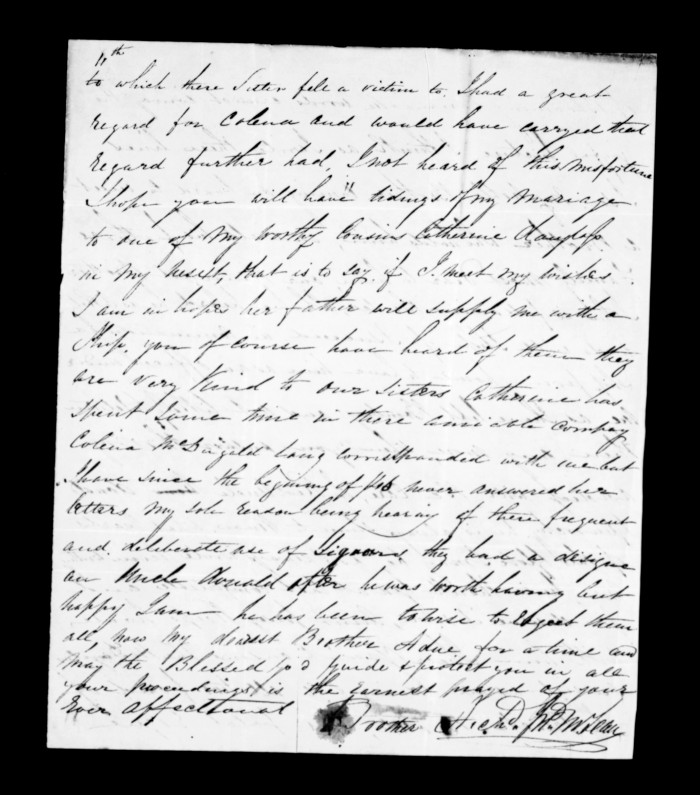 11th
to which there Sister fell a victim to, I had a great
regard for Colena and would have carryed that
regard further had, I not heard of this misfortune
I hope you will have tidings of my mariage
to one of my worthy Cousins Catherine
in my next, that is to say if I meet my wishes.
I am in hopes her father will supply me with a
Ship, you of course have heard of them they
are very kind to our Sisters Catherine has
spent some time in there amicble compay
Colena long corresponded with me but
I have since the begining of never answered her
letters my sole reason being hearing of there frequent
and deliberate use of Liquors they had a designe
on Uncle Donald after he was worth having but
happy I am he has been to wise to them
all, now my dearest Brother Adue for a time and
may the Blessed God guide & protect you in all
your proceedings is the Earnest prayed of your
Ever affectionat Brother Archd. McLean